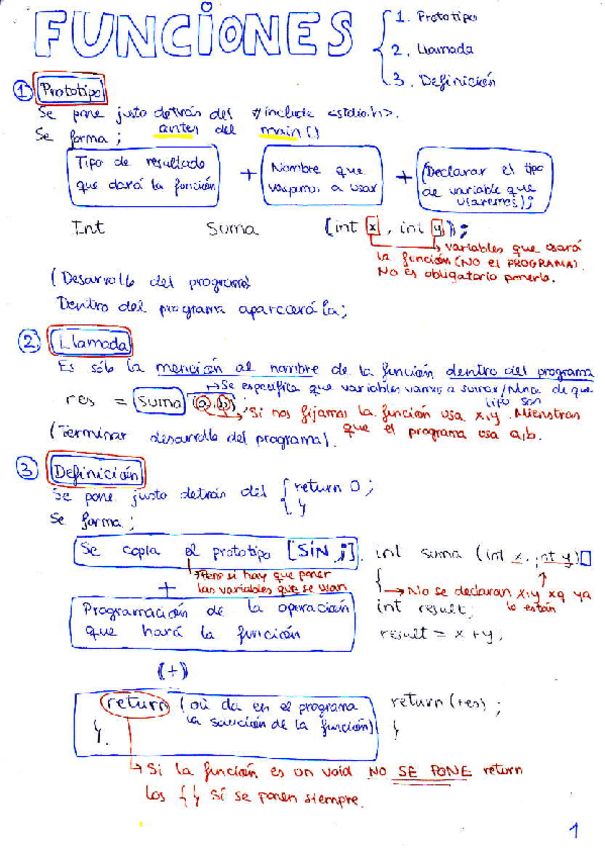 FUNCIONES
1. Prototipo
2. Llamada
3. Definición
1 Prototipo
Se pone justo detrás del #include <stdio.h>.
Se forma; antes del main()
Tipo de resultado que dará la función + Nombre que vayamos a usar + (Declarar el tipo de variable que usaremos);
Int Suma (int x, int y);
variables que usará
la función (NO el PROGRAMA).
No es obligatorio ponerla.
(Desarrollo del programa)
Dentro del programa aparecerá la;
2 Llamada
Es sólo la mención al nombre de la función dentro del programa
Se especifica que variables vamos a sumar/Nunca de que tipo son
res = Suma (a,b);
Si nos fijamos la función usa x,y. Mienstras
que el programa usa a,b.
(Terminar desarrollo del programa).
3 Definición
Se pone justo detrás del { return 0;
}
Se forma;
Se copia el prototipo [SIN ;] int suma (int x, int y)
Pero si hay que poner
las variables que se usan
{
No se declaran x,y xq ya
lo están
+
Programación de la operación int result;
que hará la función result = x + y;
(+)
return (que da en el programa return (res);
la solución de la función)
} }
Si la función es un void NO SE PONE return
Los { } Sí se ponen siempre.
1